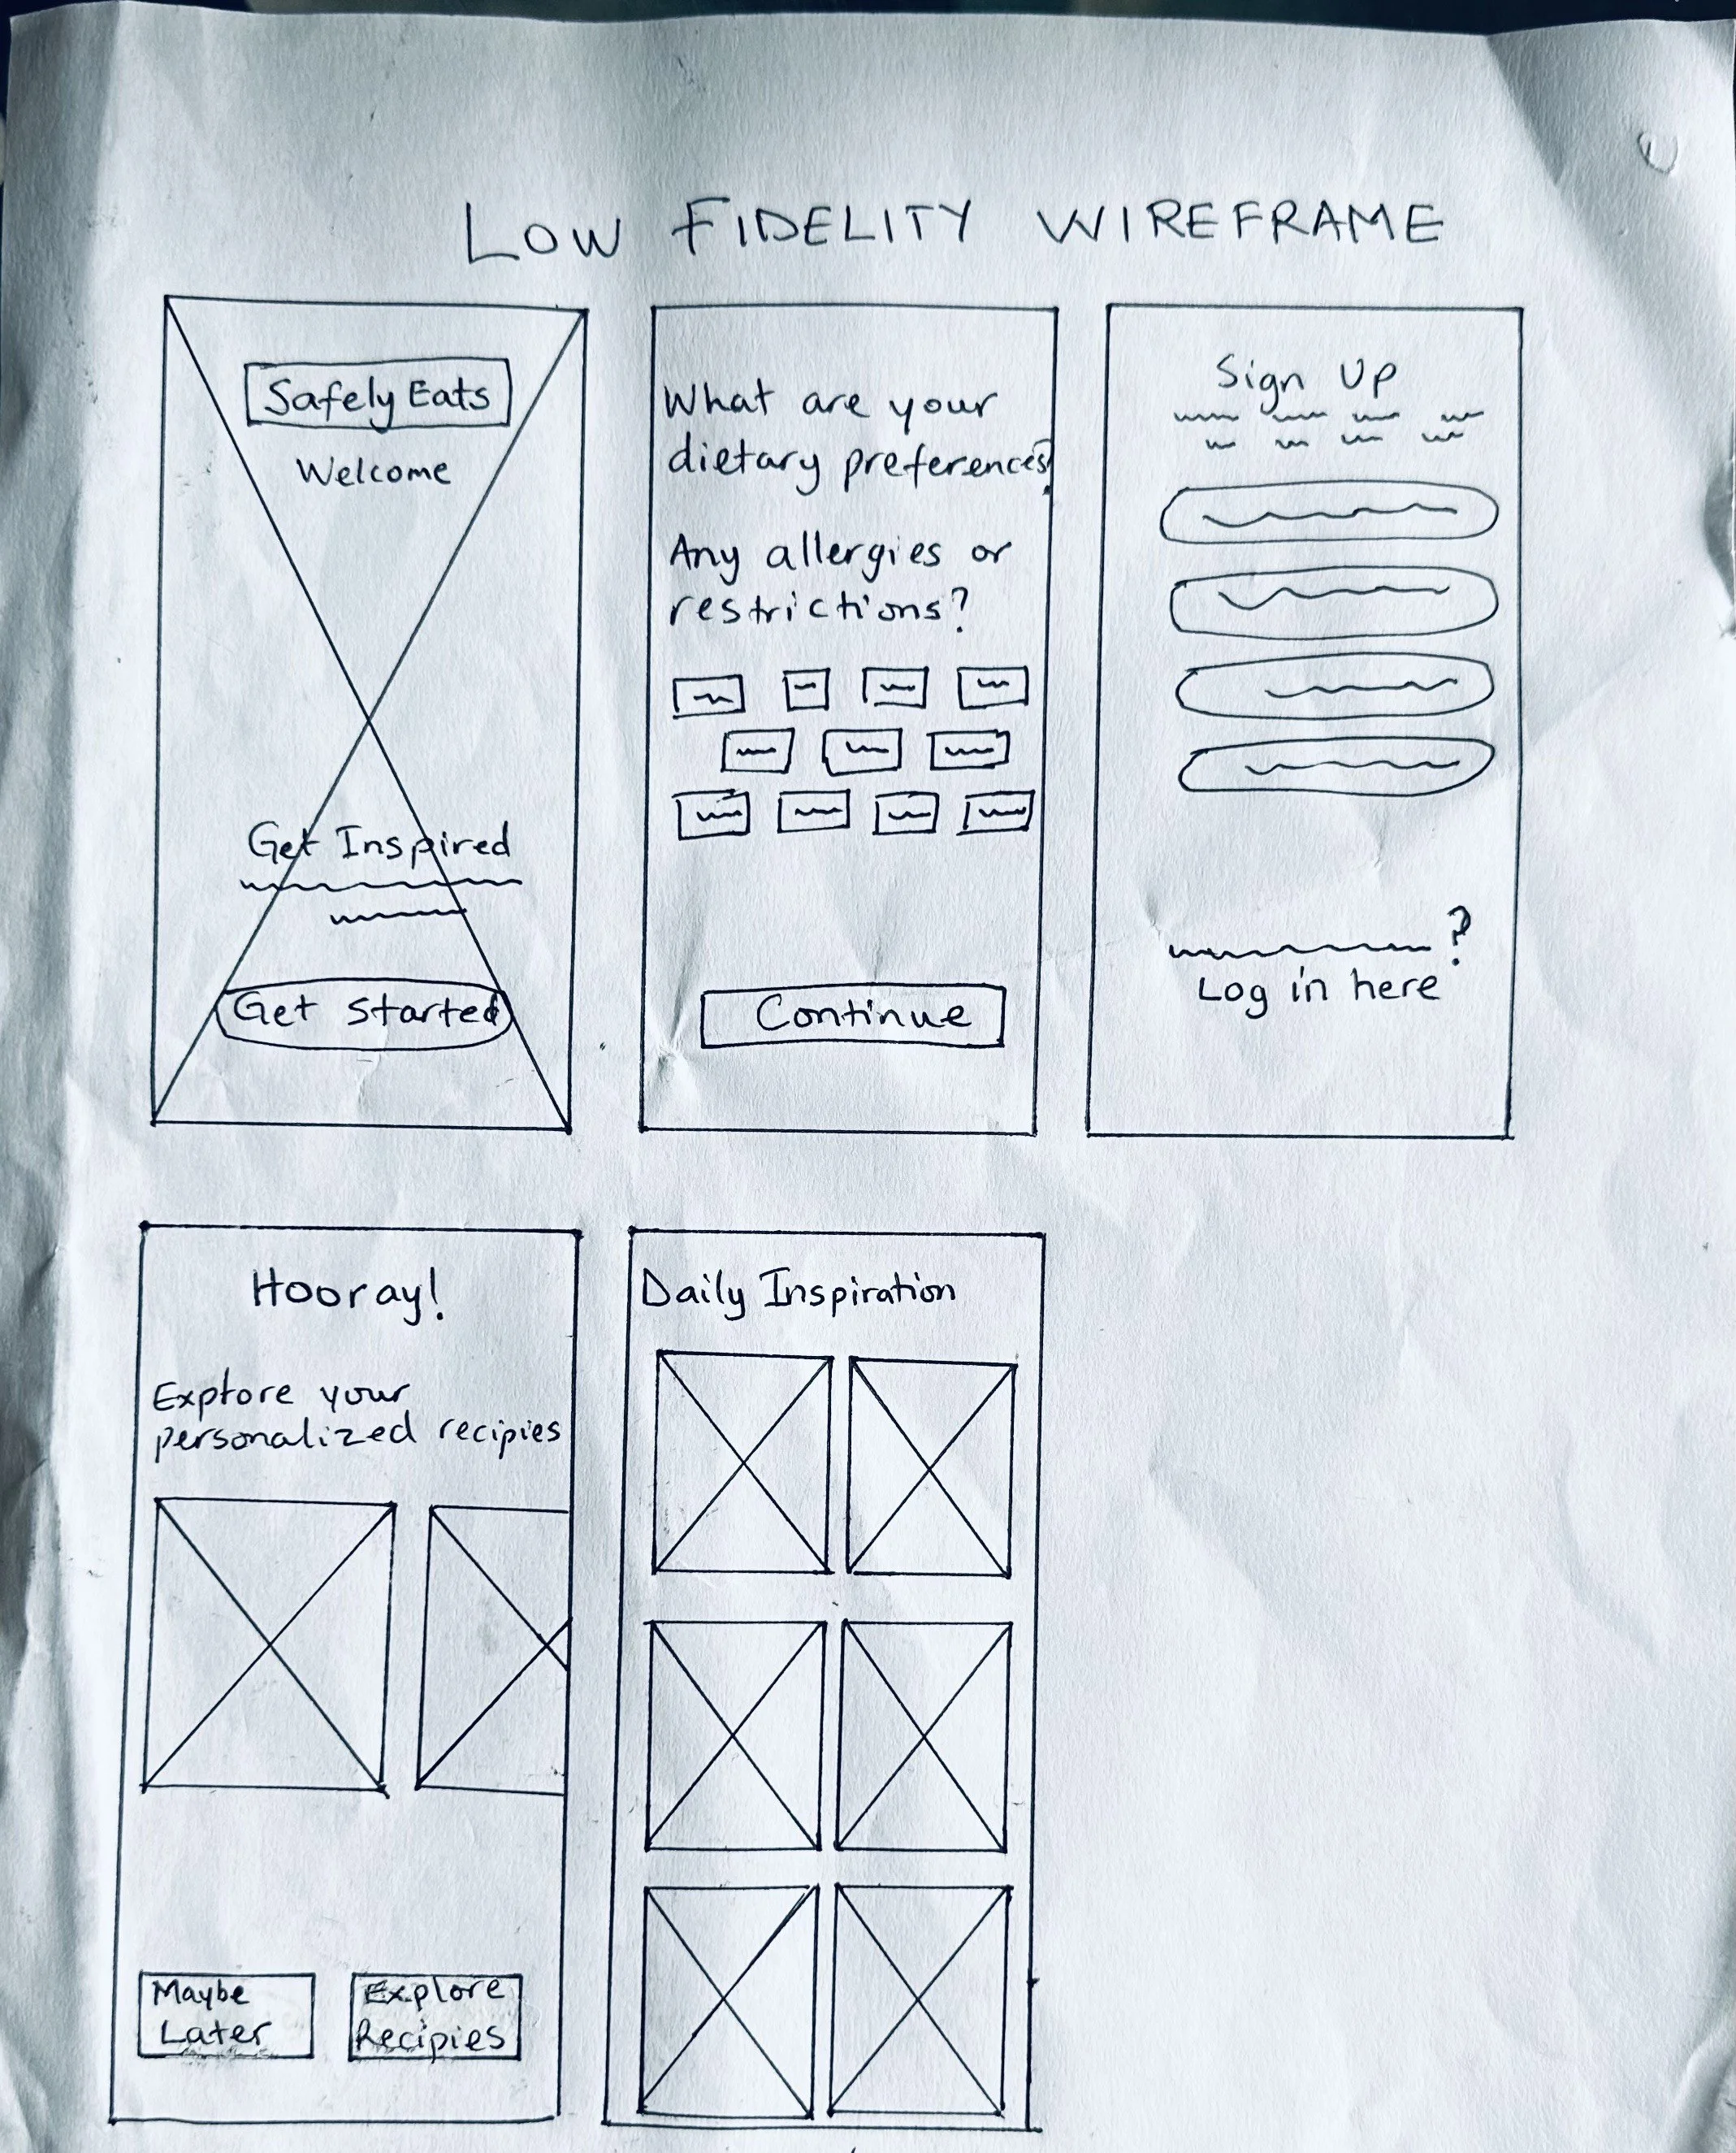 LOW FIDELITY WIREFRAME
Safely Eats
Welcome
Get Inspired
Get Started
What are your
dietary preferences?
Any allergies or
restrictions?
Continue
Sign Up
?
Log in here
Hooray!
Explore your
personalized recipies
Maybe
Later
Explore
Recipies
Daily Inspiration